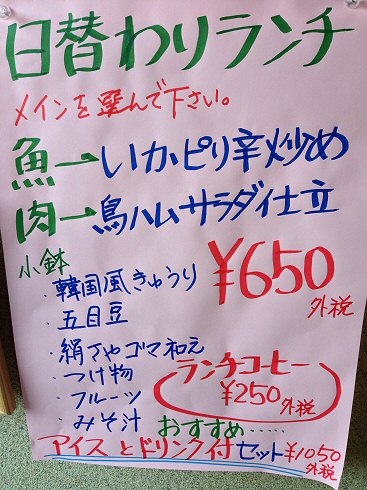 日替わりランチ
メインを選んで下さい。
魚→いかピリ辛炒め
肉→鳥ハムサラダ仕立
小鉢
・韓国風きゅうり
¥650
外税
・五目豆
・絹さやゴマ和え
・つけ物
・フルーツ
・みそ汁
ランチコーヒー
¥250
外税
おすすめ……
アイスとドリンク付セット¥1050
外税